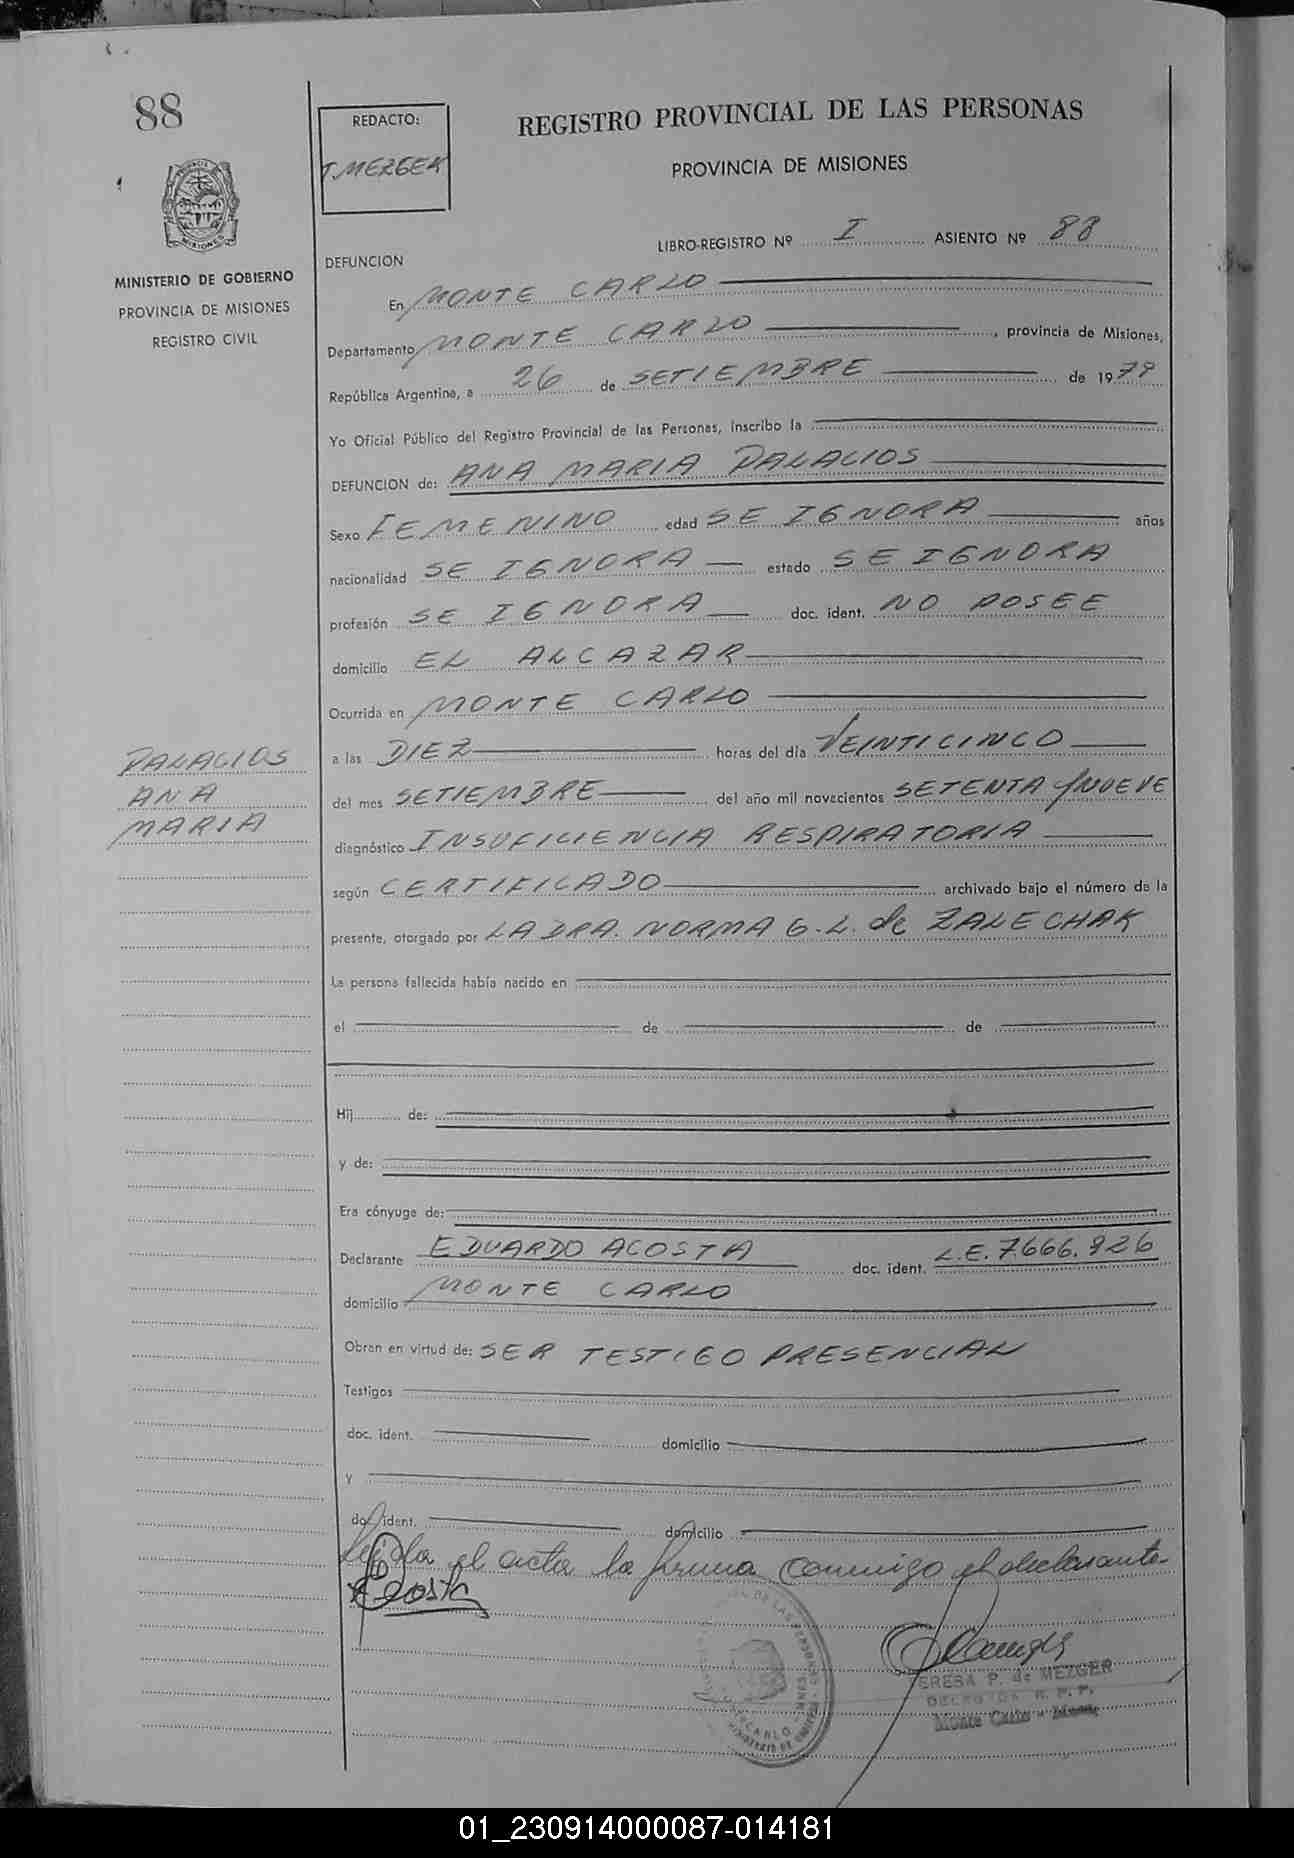 88
REDACTO:
T. MEZGER
REGISTRO PROVINCIAL DE LAS PERSONAS
PROVINCIA DE MISIONES
MISIONES
MINISTERIO DE GOBIERNO
PROVINCIA DE MISIONES
REGISTRO CIVIL
LIBRO-REGISTRO Nº I ASIENTO Nº 88
DEFUNCION
En MONTE CARLO
Departamento MONTE CARLO, provincia de Misiones,
República Argentina, a 26 de SETIEMBRE de 1979
Yo Oficial Público del Registro Provincial de las Personas, inscribo la
DEFUNCION de: ANA MARIA PALACIOS
Sexo FEMENINO edad SE IGNORA años
nacionalidad SE IGNORA estado SE IGNORA
profesión SE IGNORA doc. ident. NO POSEE
domicilio EL ALCAZAR
Ocurrida en MONTE CARLO
a las DIEZ horas del día VEINTICINCO
del mes SETIEMBRE del año mil novecientos SETENTA Y NUEVE
diagnóstico INSUFICIENCIA RESPIRATORIA
según CERTIFICADO archivado bajo el número de la
presente, otorgado por LA DRA. NORMA G. L. de ZALECHAK
PALACIOS
ANA
MARIA
La persona fallecida había nacido en
el de de
Hij de:
y de:
Era cónyuge de:
Declarante EDUARDO ACOSTA doc. ident. L.E. 7.666.926
domicilio MONTE CARLO
Obran en virtud de: SER TESTIGO PRESENCIAL
Testigos
doc. ident. domicilio
y
doc. ident. domicilio
Leida el acta la firma conmigo el declarante
Acosta
TERESA P. de MEZGER
Monte Carlo - Mnes.
01_230914000087-014181